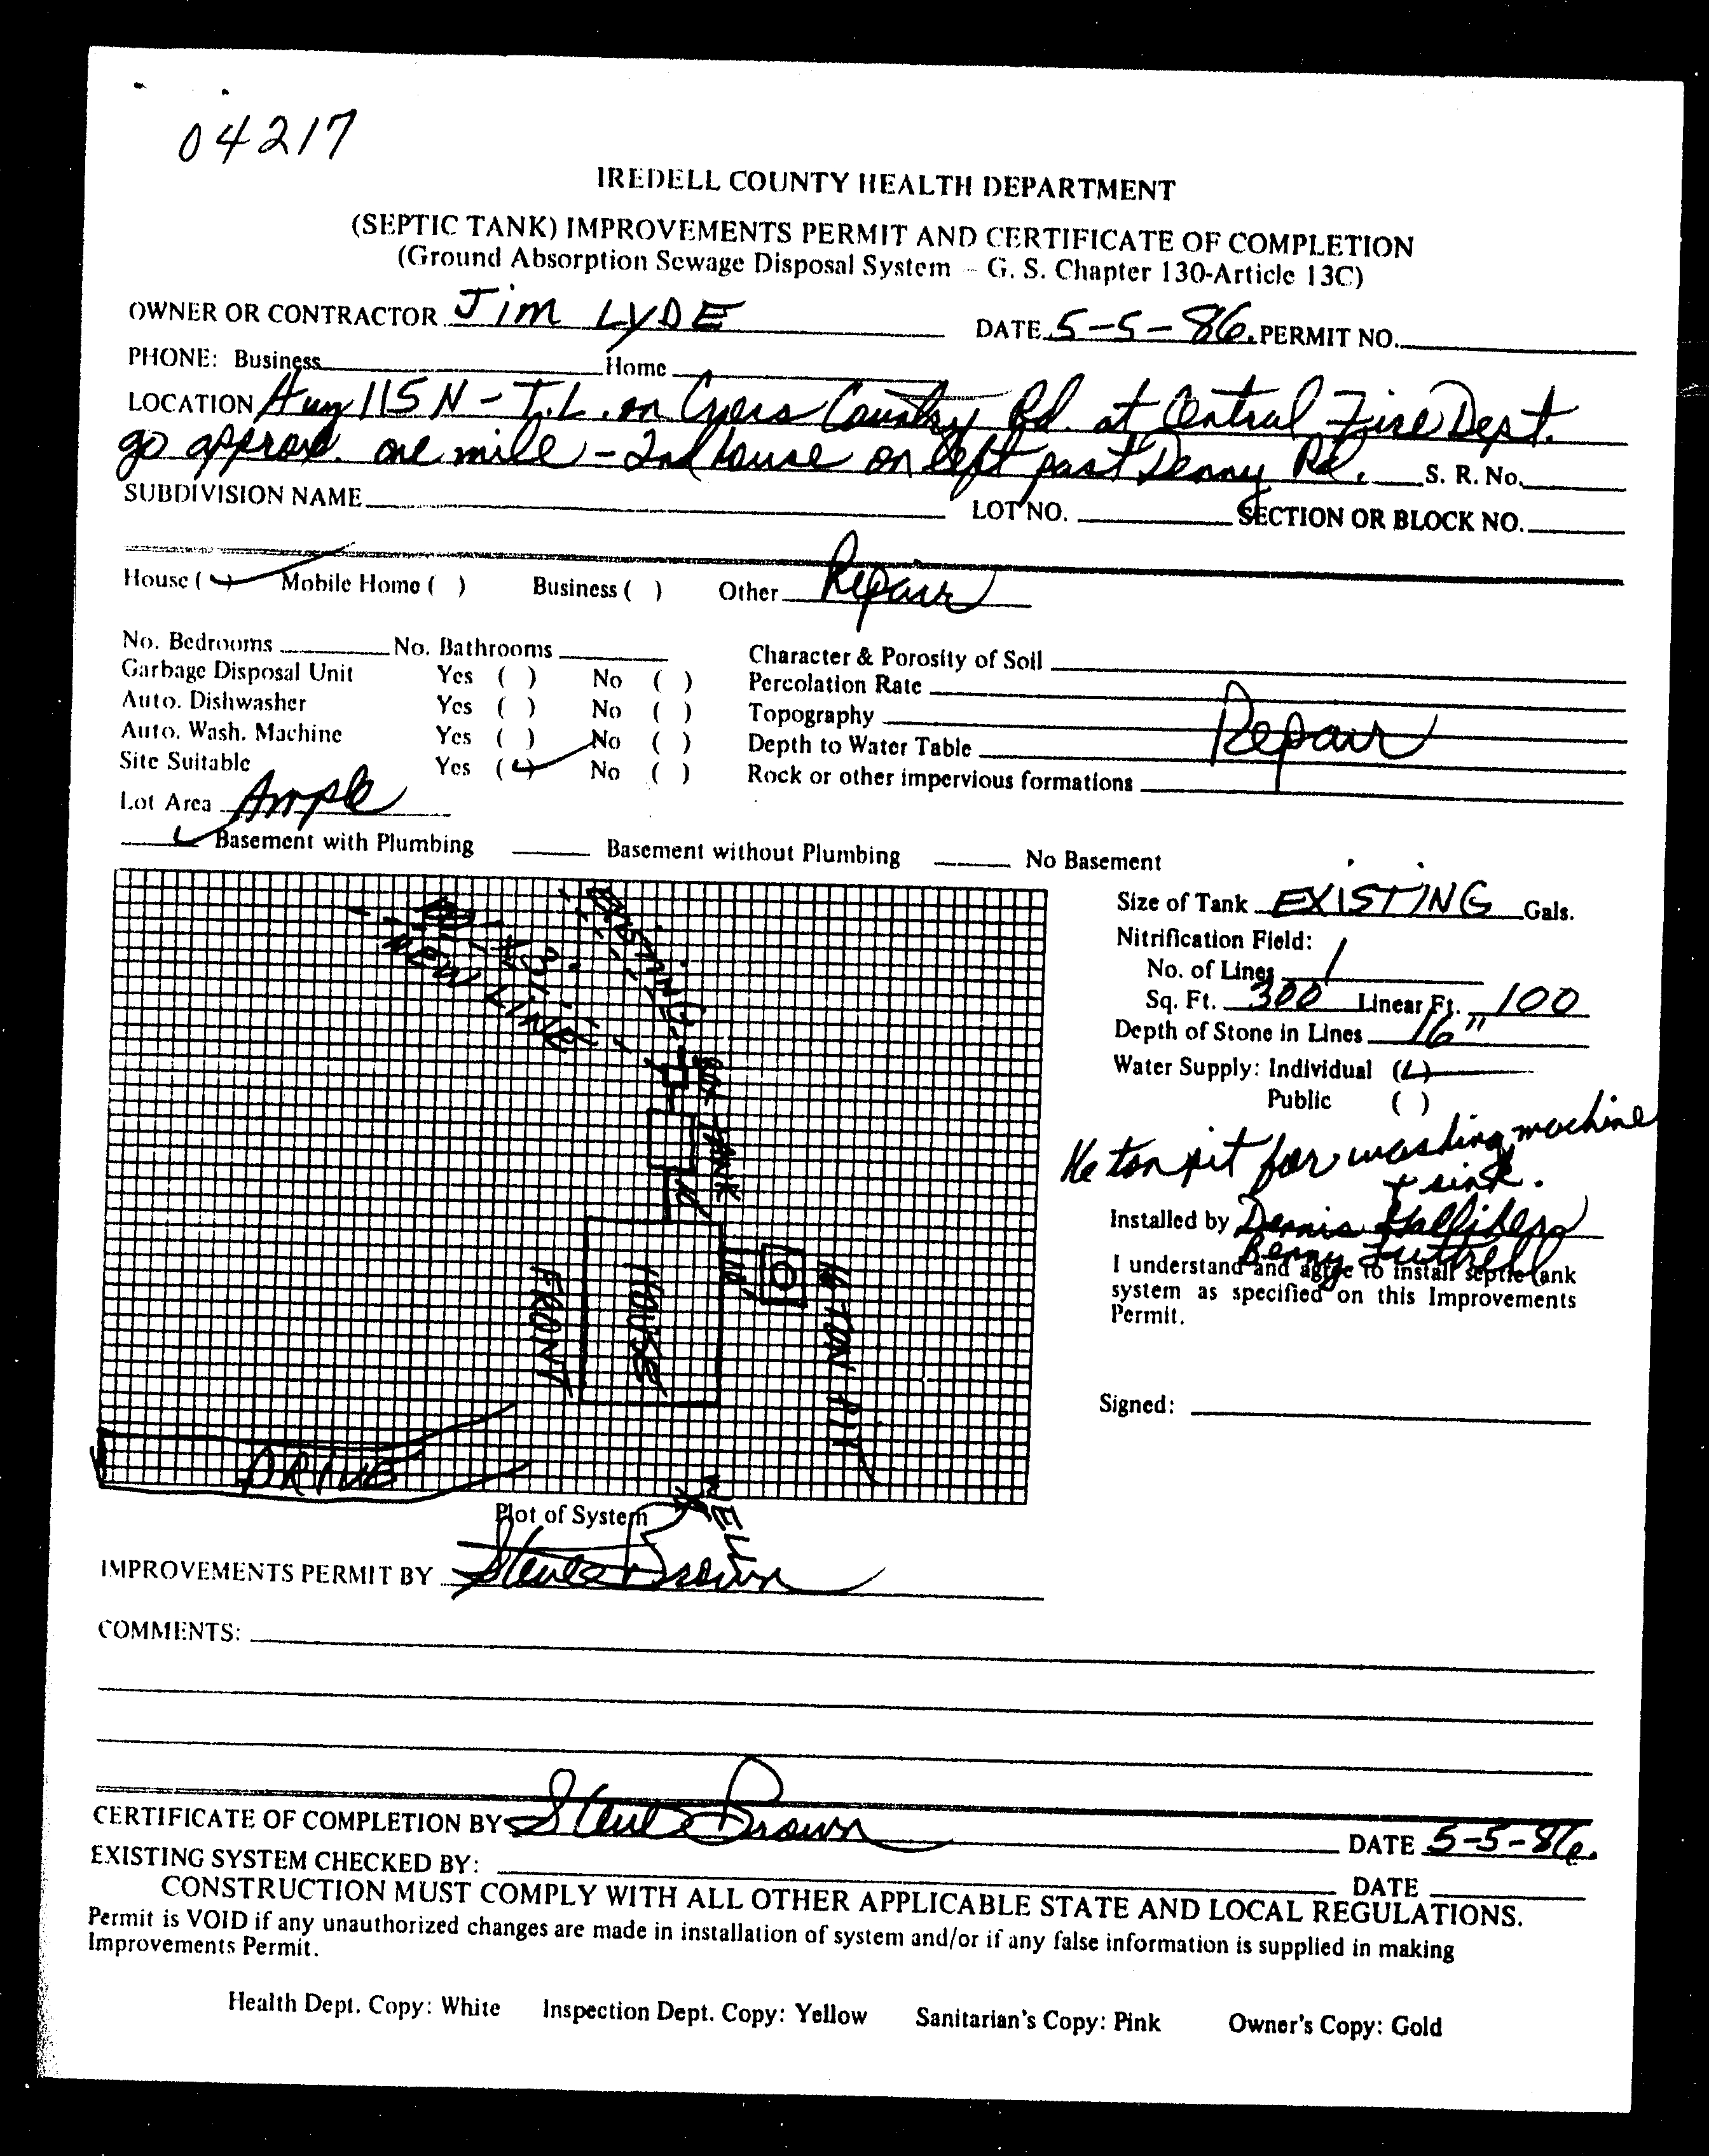 04217
IREDELL COUNTY HEALTH DEPARTMENT
(SEPTIC TANK) IMPROVEMENTS PERMIT AND CERTIFICATE OF COMPLETION
(Ground Absorption Sewage Disposal System – G. S. Chapter 130-Article 13C)
OWNER OR CONTRACTOR Jim LYDE DATE 5-5-86. PERMIT NO.
PHONE: Business Home
LOCATION Hwy 115 N - T.L. on Cross Country Rd. at Central Fire Dept.
go approx. one mile - 2nd house on left past Denny Rd. S. R. No.
SUBDIVISION NAME LOT NO. SECTION OR BLOCK NO.
House (✓) Mobile Home ( ) Business ( ) Other Repair
No. Bedrooms No. Bathrooms Character & Porosity of Soil
Garbage Disposal Unit Yes ( ) No ( ) Percolation Rate
Auto. Dishwasher Yes ( ) No ( ) Topography Repair
Auto. Wash. Machine Yes ( ) No ( ) Depth to Water Table
Site Suitable Yes (✓) No ( ) Rock or other impervious formations
Lot Area Ample
✓ Basement with Plumbing Basement without Plumbing No Basement
Size of Tank EXISTING Gals.
Nitrification Field:
No. of Lines 1
Sq. Ft. 300 Linear Ft. 100
Depth of Stone in Lines 16"
Water Supply: Individual (✓)
Public ( )
16 ton pit for washing machine
+ sink.
Installed by Dennis
Benny
I understand and agree to install septic tank
system as specified on this Improvements
Permit.
Signed:
EXISTING
NEW LINE
TANK
10'
HOUSE
FRONT
10'
16 TON PIT
DRIVE
WELL
Plot of System
IMPROVEMENTS PERMIT BY Steve Brown
COMMENTS:
CERTIFICATE OF COMPLETION BY Steve Brown DATE 5-5-86.
EXISTING SYSTEM CHECKED BY: DATE
CONSTRUCTION MUST COMPLY WITH ALL OTHER APPLICABLE STATE AND LOCAL REGULATIONS.
Permit is VOID if any unauthorized changes are made in installation of system and/or if any false information is supplied in making
Improvements Permit.
Health Dept. Copy: White Inspection Dept. Copy: Yellow Sanitarian's Copy: Pink Owner's Copy: Gold